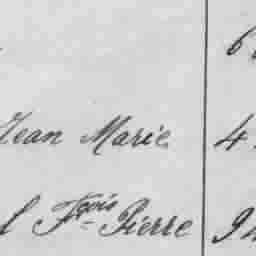 6
Jean Marie 4
l Fçois Pierre 94